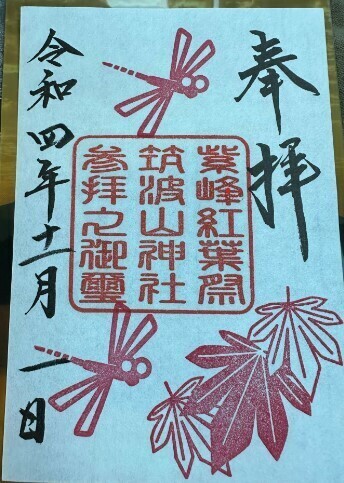 奉拝
紫峰紅葉祭
筑波山神社
参拝之御璽
令和四年十一月一日